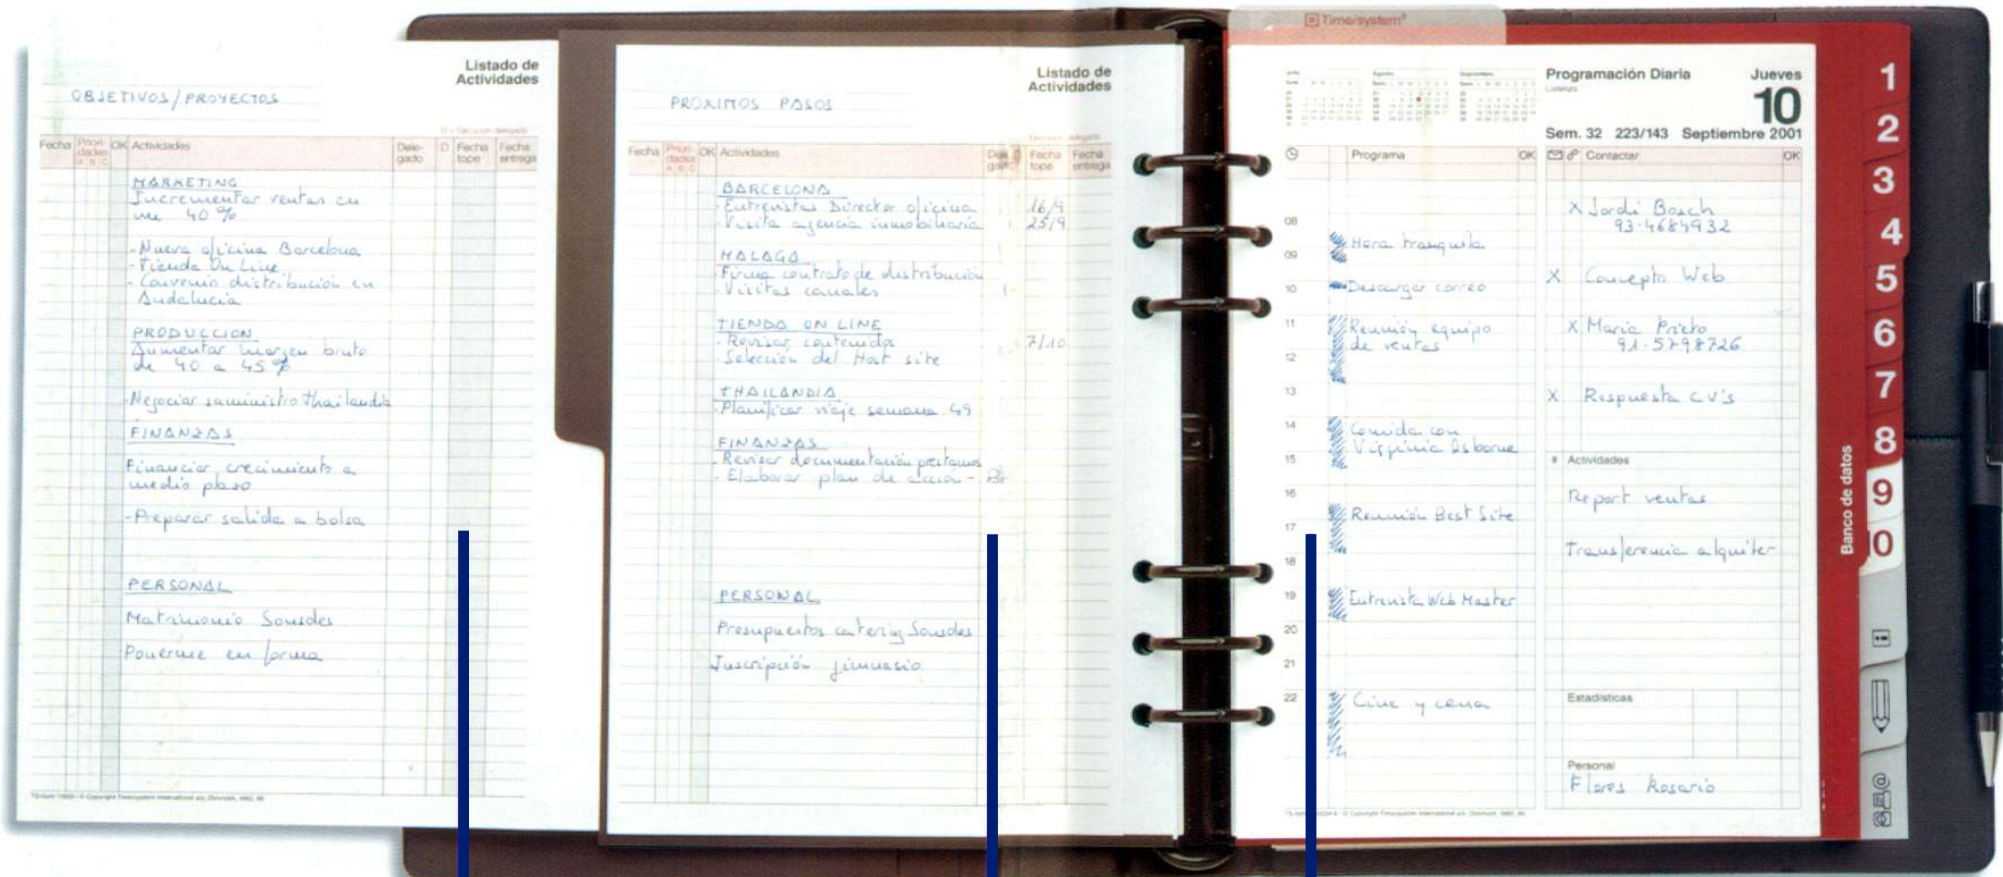 Listado de
Actividades
OBJETIVOS/PROYECTOS
Fecha
Priori-
dades
A B C
OK
Actividades
Dele-
gado
D
Fecha
tope
Fecha
entrega
MARKETING
Incrementar ventas en
un 40 %
- Nueva oficina Barcelona
- Tienda On Line
- Convenio distribución en
Andalucía
PRODUCCION
Aumentar margen bruto
de 40 a 45 %
-Negociar suministro thailandia
FINANZAS
Financiar crecimiento a
medio plazo
-Preparar salida a bolsa
PERSONAL
Matrimonio Sousdes
Ponerme en forma
Listado de
Actividades
PROXIMOS PASOS
Fecha
Priori-
dades
A B C
OK
Actividades
Fecha
tope
Fecha
entrega
BARCELONA
-Entrevistas Director oficina 16/9
-Visita agencia inmobiliaria 25/9
MALAGA
-Firma contrato de distribución
-Visitas canales
TIENDA ON LINE
- Revisar contenidos 7/10
- Selección del Host site
THAILANDIA
-Planificar viaje semana 49
FINANZAS
- Revisar documentación prestamos
- Elaborar plan de acción -
PERSONAL
Presupuestos catering Sousdes
Inscripción gimnasio
Time/system®
Programación Diaria
Lorenzo
Jueves
10
Sem. 32 223/143 Septiembre 2001
Programa
OK
Contactar
OK
08
09
10
11
12
13
14
15
16
17
18
19
20
21
22
Hora tranquila
Descargar correo
Reunión equipo
de ventas
Comida con
Virginia Osborne
Reunión Best Site
Entrevista Web Master
Cine y cena
X Jordi Bosch
93-4684932
X Concepto Web
X Maria Prieto
91-5798726
X Respuesta CV's
# Actividades
Report ventas
Transferencia alquiler
Estadísticas
Personal
Flores Rosario
Banco de datos
1
2
3
4
5
6
7
8
9
10